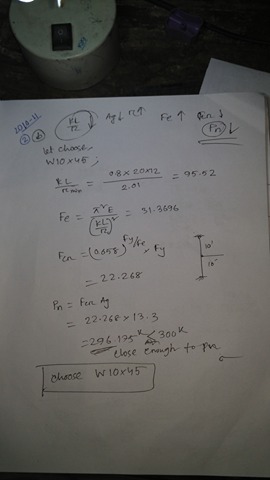 2010-11
② ⓑ
KL/r ↓ Ag↓ r↑ Fe ↑ Fcr ↓
Pn ↓
let choose,
W10×45 ;
KL/r min = 0.8 × 20×12 / 2.01 = 95.52
Fe = π²E / (KL/r)² = 31.3696
Fcr = (0.658)^Fy/Fe × Fy
10'
= 22.268
10'
Pn = Fcr Ag
= 22.268 × 13.3
= 296.175ᵏ < 300ᵏ
close enough to Pn
choose W10×45